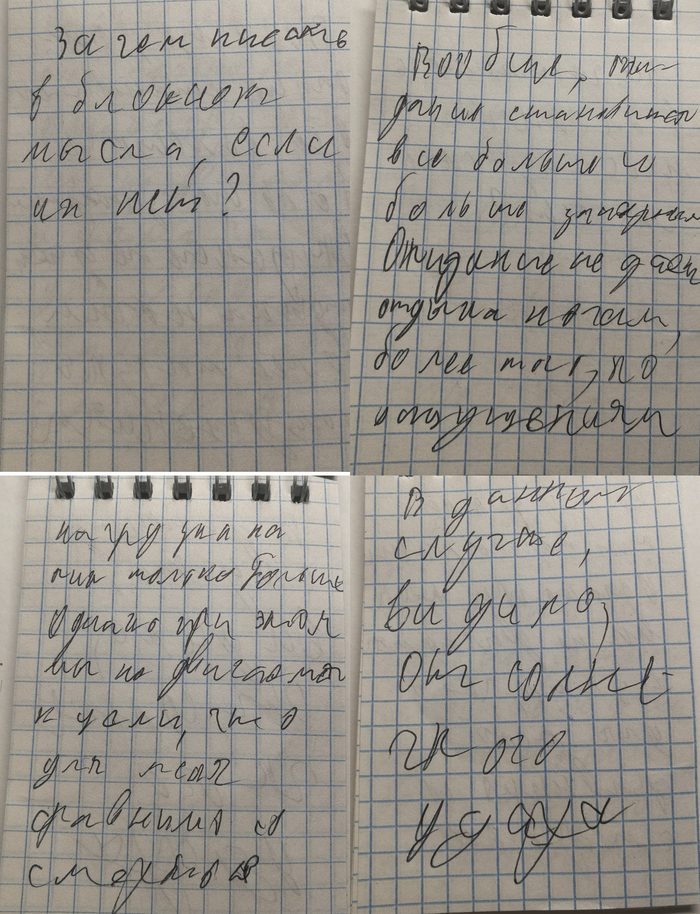 Зачем писать
в блокнот
мысла, если
их нет?
Вообще, ожи-
дание становится
все больше и
больше
Ожидание не дает
отдыха ногам,
более того, по
ощущениям
нагрузка на
них только больше
Однако при этом
мы не двигаемся
к цели, что
для меня
сравнимо со
смертью
В данном
случае,
видимо,
от солнеч-
ного
удара